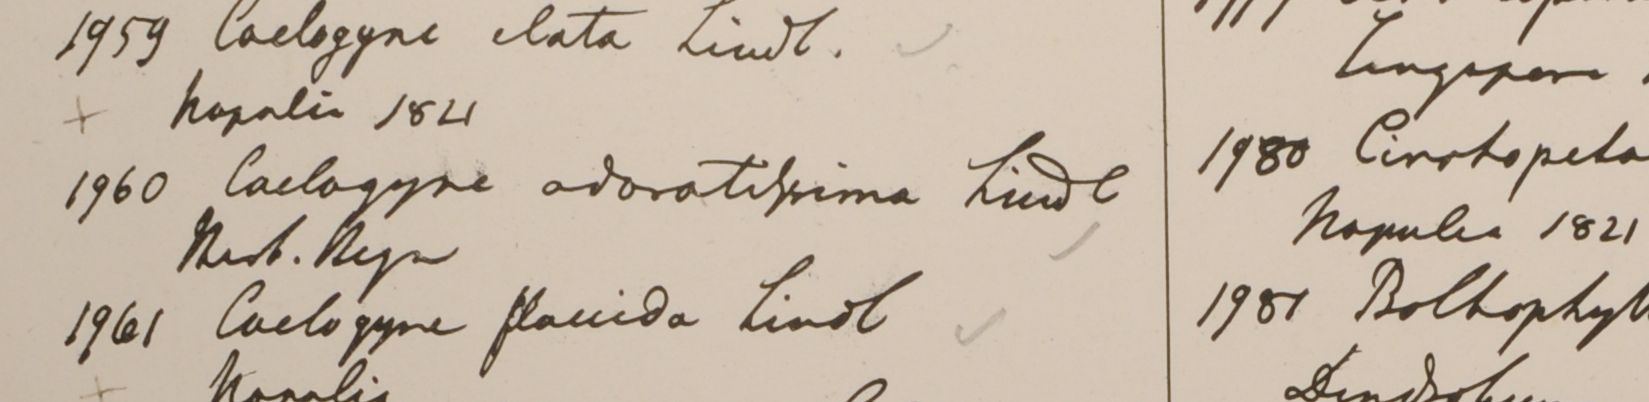 1959 Caelogyne elata Lindl.
+ Napalia 1821
1960 Caelogyne odoratissima Lindl
Herb. Heyn
1961 Caelogyne flaccida Lindl
+ Napalia
Singapore
1980 Cirrhopeta
Napalia 1821
1981 Bolbophyll
Dendrobium